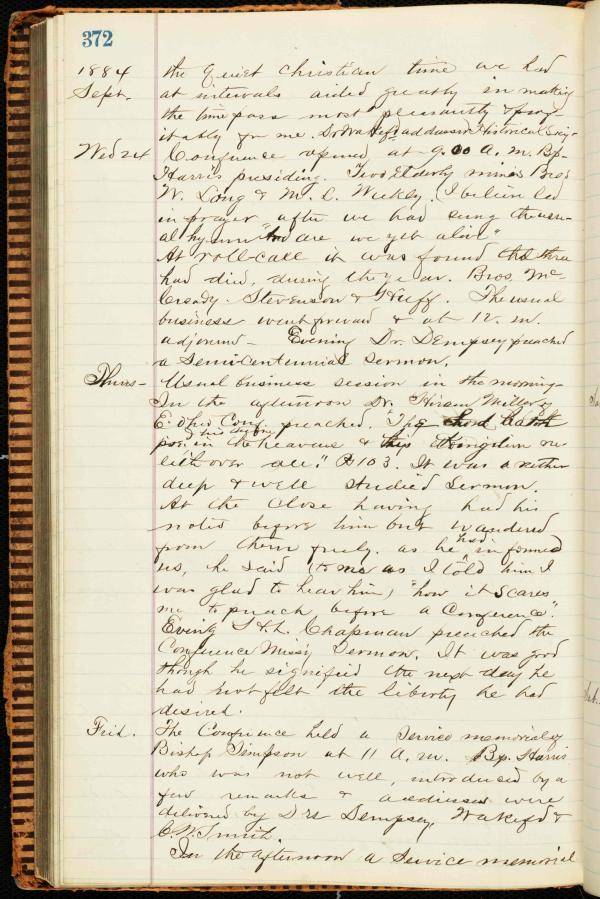 372
1884 the quiet christian time we had
Sept. at intervals aided greatly in making
the time pass most pleasantly & prof-
itably for me. Dr Wakef'd address in Historical
Wed 24 Conference opened at 9.00 a.m. Bp.
Harris presiding. Two Elderly minis Bros
W. Long & M. L. Weekly. (I believe led
in prayer after we had sung the usu-
al hymn "And are we yet alive"
At roll-call it was found that three
had died, during the year. Bros. Mc-
Cready. Stevenson & Huff. The usual
business went forward & at 12. m.
adjourned - Evening Dr. Dempsey preached
a Semi-Centennial Sermon.
Thurs- Usual business session in the morning-
In the afternoon Dr. Hiram Miller of
E. Ohio Conf. preached. "The Lord hath
pre. his throne in the heavens & his kingdom ru-
leth over all." Ps 103. It was a rather
deep & well studied Sermon.
At the close having had his
notes before him but wandered
from them freely. as he had informed
us, he said (to me as I told him I
was glad to hear him) "how it scares
me to preach before a Conference".
Evenig T.H.L. Chapman preached the
Conference Miss'y Sermon. It was good
though he signified the next day he
had not felt the liberty he had
desired.
Frid. The Conference held a Service memorial of
Bishop Simpson at 11 A.m. Bp. Harris
who was not well, introduced by a
few remarks & addresses were
delivered by Drs Dempsey, Wakef'd &
C.W. Smith.
In the afternoon a Service memorial